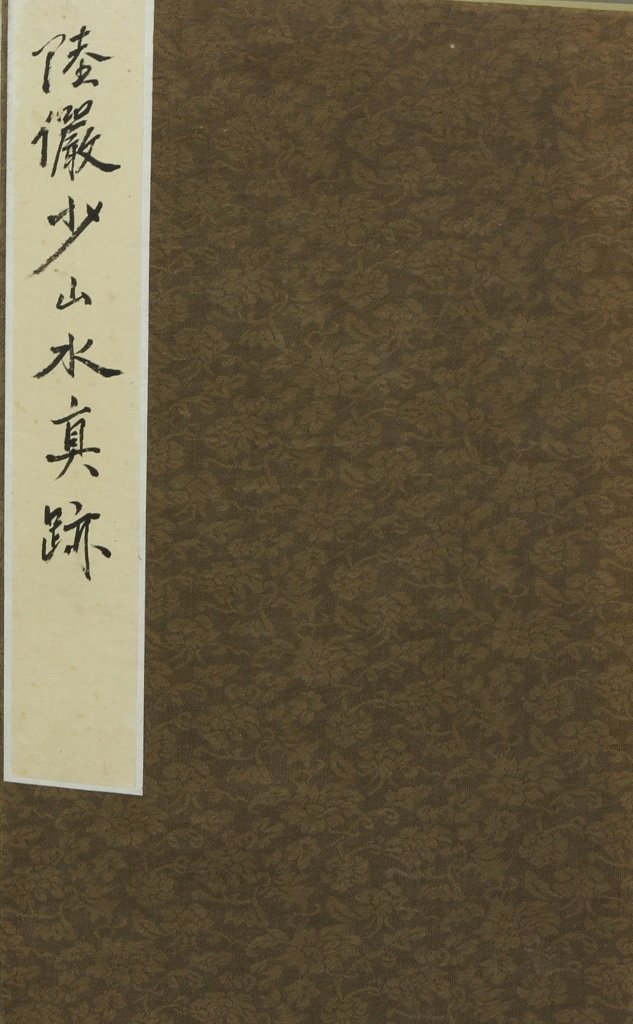 陸儼少山水真跡